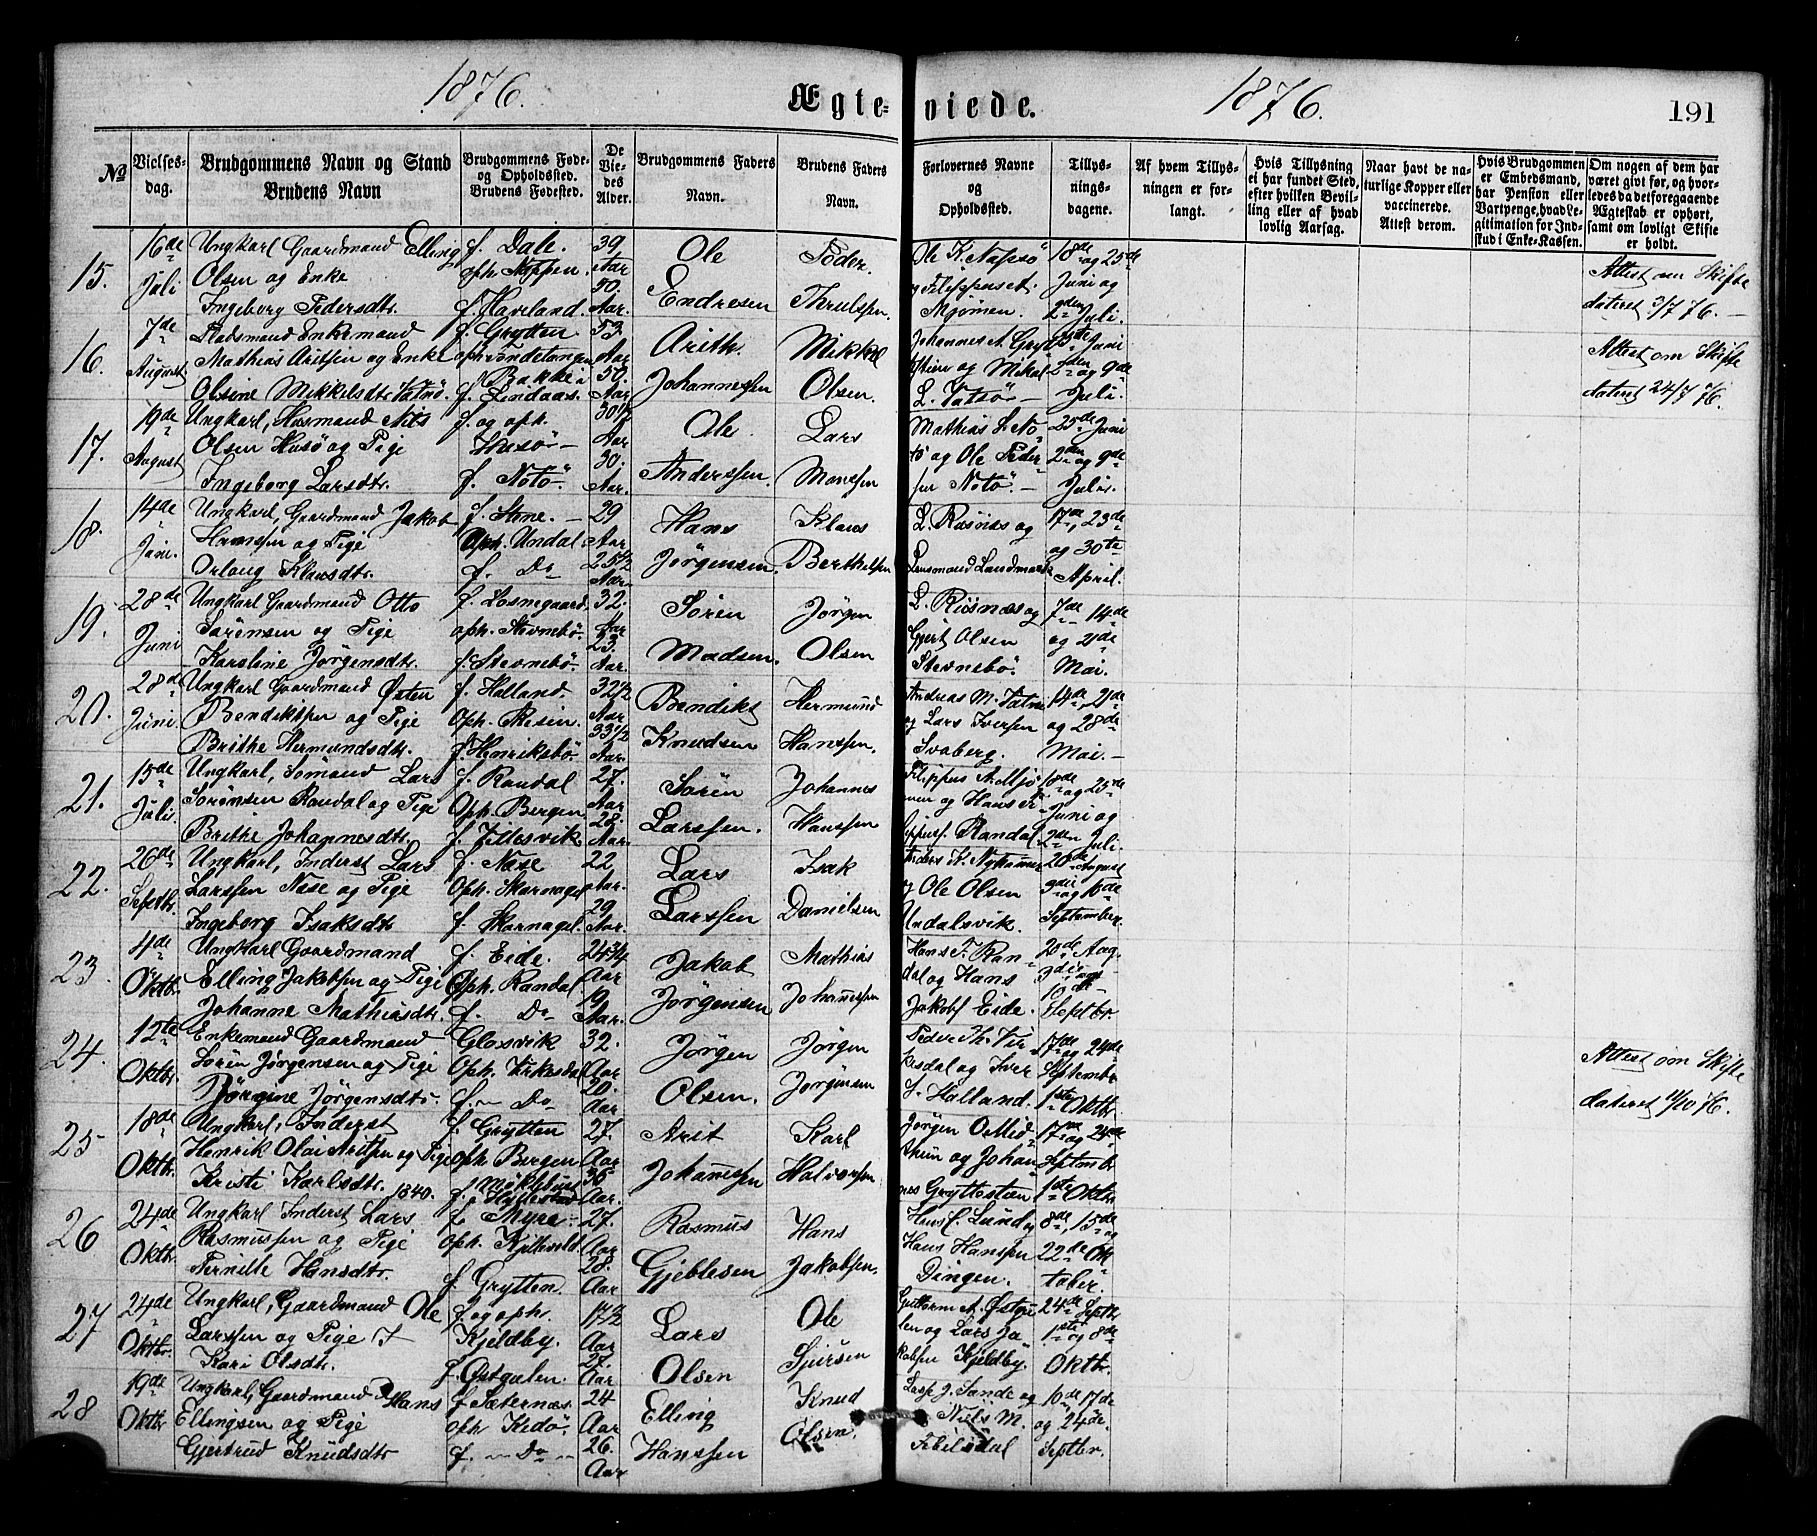 1876. Ægte- viede. 1876. 191
No
Vielses-dag.
Brudgommens Navn og Stand
Brudens Navn
Brudgommens Føde- og Opholdssted.
Brudens Fødested.
De Vie-des Alder.
Brudgommens Faders Navn.
Brudens Faders Navn.
Forlovernes Navne og Opholdssted.
Tillys-nings-dagene.
Af hvem Tillys-ningen er for-langt.
Hvis Tillysning ei har fundet Sted, efter hvilken Bevil-ling eller af hvad lovlig Aarsag.
Naar havt de na-turlige Kopper eller vaccinerede. Attest derom.
Hvis Brudgommen er Embedsmand, har Pension eller Vartpenge, hvad Le-gitimation for Ind-skud i Enke-Kassen.
Om nogen af dem har været givt før, og hvor-ledes da det foregaaende Ægteskab er ophørt, samt om lovligt Skifte er holdt.
15. 16de Juli
Ungkarl Gaardmand Elling
Olsen og Enke
Ingeborg Pedersdtr.
f. Dale.
oph. Noppen
f. Haveland.
39 Aar
50. Aar.
Ole Endresen
Peder Thrulssen.
Ole K. Napsö
og Filippus et.
Mjömen.
18de og 25de
Juni og
2den Juli.
Attest om Skifte
dateret 3/7 76. —
16. 7de August
Pladsmand Enkemand
Mathias Aritsen og Enke
Olsine Mikkelsdtr. Vatnö.
f. Grytten
oph. Töndetangen
f. Bakke i
Lindaas.
53. Aar
50. Aar
Arith. Johannessen
Mikkel Olsen.
Johannes A. Gryt
stien og Mikal
L. Vatsör.
Juni
2den og 9de
Juli.
Attest om Skifte
dateret 24/7 76.
17. 19de August
Ungkarl, Husmand Nils
Olsen Husö og Pige
Ingeborg Larsdtr.
f. og oph.
Husör —
f. Notö.
30 1/2 Aar
30. Aar.
Ole Anderssen.
Lars Monssen
Mathias L. No
tö og Ole Peder
sen Notö. —
25de Juni
2den og 9de
Juli.
18. 14de Juni.
Ungkarl, Gaardmand Jakob
Hanssen og Pige
Orlaug Klausdtr.
f. Stene. —
Oph. Undal
f. Do
29 Aar
25 1/2 Aar
Hans Jörgensen.
Klaus Berthelsen
L. Risnæs og
Lensmand Landmark
17de, 23de
og 30te
April.
19. 28de Juni
Ungkarl Gaardmand Otto
Sörensen og Pige
Karoline Jörgensdtr.
f. Losnegaard,
oph. Stevnebö.
f. Stevnebö
32. Aar
23. Aar.
Sören Madsen.
Jörgen Olsen
L. Risnæs og
Gjert Olsen
Stevnebö.
7de 14de
og 21de
Mai.
20. 28de Juni.
Ungkarl Gaardmand Østen
Bendiktsen og Pige
Brithe Hermundsdtr.
f. Halland.
Oph. Risin.
f. Henriksbö.
32 1/2 Aar
33 1/2 Aar.
Bendikt Knudsen
Hermund Hanssen.
Andreas M. Vatne
og Lars Iversen
Svaberg.
14de, 21de
og 28de
Mai. —
21. 15de Juli.
Ungkarl, Sömand Lars
Sörensen Randal og Pige
Brithe Johannesdtr.
f. Randal
Oph. Bergen.
f. Fillesvik
27. Aar
28. Aar.
Sören Larssen.
Johannes Hanssen
Filippus A. Mjö
men og Hans
Randal.
18de og 25de
Juni og
2den Juli.
22. 26de Septbr.
Ungkarl, Inderst Lars
Larssen Nese og Pige
Ingeborg Isaksdtr.
f. Nese
Oph. Skarnagel
f. Skarnagel.
22 Aar.
29 Aar.
Lars Larssen
Isak Danielsen
Anders K. Nyhammer
og Ole Olsen
Undalsvik.
20de August
3die og 10de
September.
23. 4de Oktbr.
Ungkarl Gaardmand
Elling Jakobsen og Pige
Johanne Mathiasdtr.
f. Eide.
Oph. Randal
f. Do
24 3/4 Aar
19 Aar.
Jakob Jörgensen
Mathias Johannessen
Hans F. Ran
dal og Hans
Jakobs Eide.
20de Aug.
3die og
10de
Septbr.
24. 12te Oktbr.
Enkemand Gaardmand
Sören Jörgensen og Pige
Jörgine Jörgensdtr.
Glosvik
Oph. Virkesdal
f. — Do
32. Aar
20. Aar
Jörgen Olsen.
Jörgen Jörgensen
Peder Th. Vir
kesdal og Iver
J. Halland.
17de og 24de
Septembr
1ste Oktbr.
Attest om Skifte
dateret 11/10 76.
25. 18de Oktbr.
Ungkarl, Inderst
Henrik Olai Aritsen og Pige
Kristi Karlsdtr. 1840.
f. Grytten
oph. Bergen
f. Möklebust
i Hyllestad
27. Aar
36 Aar.
Arit Johannessen
Karl Halvorsen
Jörgen O. Mid
thun og Johan
nes Gryttestien
17de og 24de
Septembr
1ste Oktbr.
26 24de Oktbr.
Ungkarl Inderst Lars
Rasmussen og Pige
Pernille Hansdtr.
f. Myre —
oph. Kjelkvold
f. Grytten.
27. Aar
28. Aar
Rasmus Gjeblesen
Hans Jakobsen.
Hans C. Lund og
Hans Hanssen
Dingen.
8de, 15de
22de Ok
tober.
27 24de Oktbr.
Ungkarl, Gaardmand Ole
Larssen og Pige
Kari Olsdtr.
f. og oph.
Kjeldby.
f. Østgulen.
17 1/2 Aar
27. Aar
Lars Olsen
Ole Sjursen
Guttorm A. Østgu
len og Lars Ja
kobsen Kjeldby.
24de Septbr
1ste og 8de
Oktbr.
28 19de Oktbr.
Ungkarl, Gaardmand Hans
Ellingsen og Pige
Gjertrud Knudsdtr.
f. Sæternæs
oph. Kedö.
f. — Do —
24 Aar
26. Aar
Elling Hanssen
Knud Olsen.
Lasse J. Sande og
Niels M.
10de 17de
og 24de
Septbr.